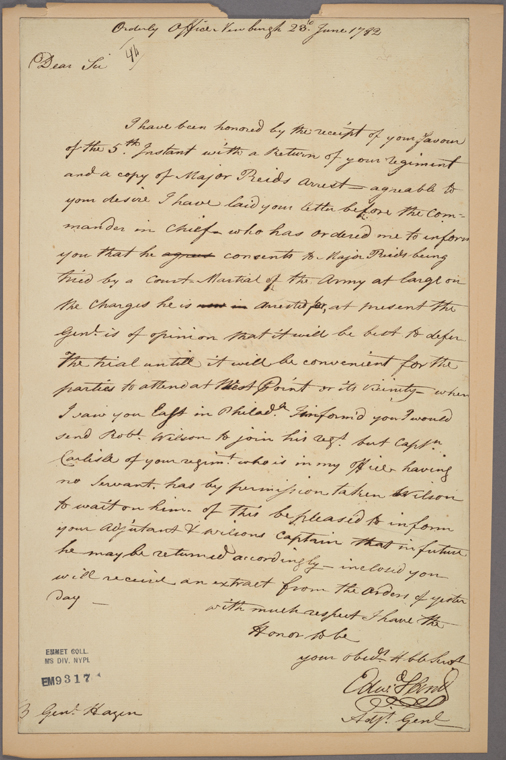 Orderly Office Newburgh 23d June 1782
44
Dear Sir
I have been honored by the receipt of your favour
of the 5th Instant with a Return of your regiment
and a copy of Major Reids Arrest — agreable to
your desire I have laid your letter before the Com-
mander in Chief — who has ordered me to inform
you that he agrees consents to Major Reids being
tried by a Court-Martial of the Army at large on
the charges he is now in arrested for, at present the
Genl. is of opinion that it will be best to defer
the trial untill it will be convenient for the
parties to attend at West Point or its Vicinity — when
I saw you last in Philada. I inform'd you I would
send Robt. Wilson to join his regt. but Captn.
Carlisle of your regimt. who is in my office having
no Servant, has by permission taken Wilson
to wait on him. of this be pleased to inform
your Adjutant & Wilsons Captain that in future
he may be returned accordingly — inclosed you
will receive an extract from the orders of yester
day —
with much respect I have the
Honor to be
your obedt. Hble Servt
Edwd. Hand
Adjt. Genl
EMMET COLL.
MS DIV. NYPL
EM9317
Genl. Hazen